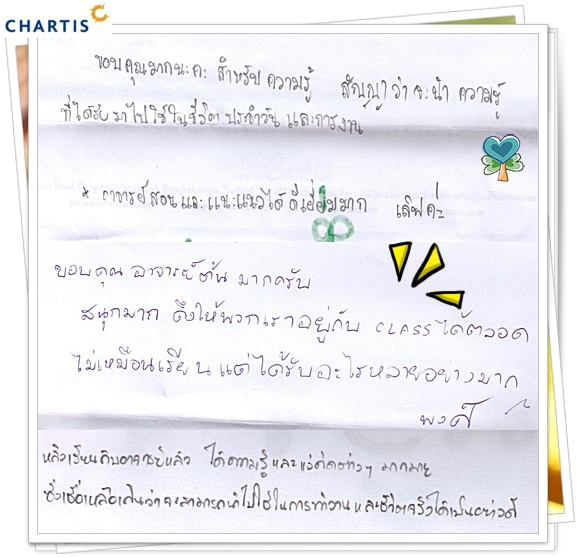 CHARTIS
ขอบคุณมากนะคะ สำหรับความรู้ สัญญาว่าจะนำความรู้
ที่ได้รับมาไปใช้ในชีวิตประจำวัน และการงาน
* อาจารย์สอนและแนะแนวได้ดีเยี่ยมมาก เลิฟค่ะ
ขอบคุณ อาจารย์ต้น มากครับ
สนุกมาก ดึงให้พวกเราอยู่กับ CLASS ได้ตลอด
ไม่เหมือนเรียน แต่ได้รับอะไรหลายอย่างมาก
พงศ์
หลังเรียนกับอาจารย์แล้ว ได้ความรู้และแง่คิดต่างๆ มากมาย
ซึ่งเชื่อเหลือเกินว่าจะสามารถนำไปใช้ในการทำงานและชีวิตจริงได้เป็นอย่างดี